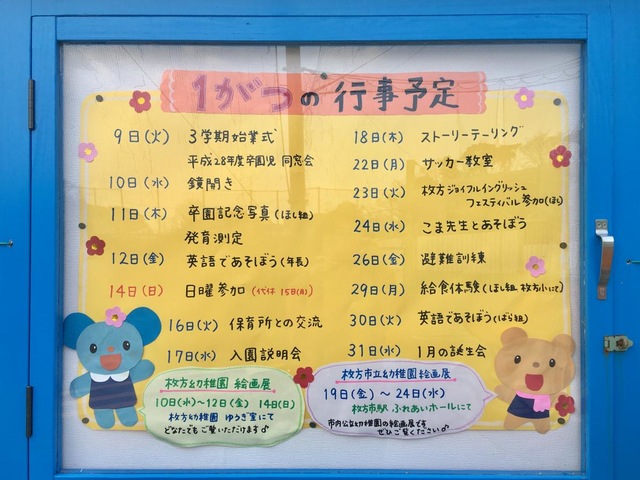 1がつの 行事予定
9日(火) 3学期始業式
平成28年度卒園児 同窓会
10日(水) 鏡開き
11日(木) 卒園記念写真(ほし組)
発育測定
12日(金) 英語であそぼう(年長)
14日(日) 日曜参加(代休 15日(月))
16日(火) 保育所との交流
17日(水) 入園説明会
18日(木) ストーリーテーリング
22日(月) サッカー教室
23日(火) 枚方ジョイフルイングリッシュ
フェスティバル参加(ほし)
24日(水) こま先生とあそぼう
26日(金) 避難訓練
29日(月) 給食体験(ほし組 枚方小にて)
30日(火) 英語であそぼう(ばら組)
31日(水) 1月の誕生会
枚方幼稚園 絵画展
10日(水)~12日(金) 14日(日)
枚方幼稚園 ゆうぎ室にて
どなたでもご覧いただけます♂
枚方市立幼稚園絵画展
19日(金)~24日(水)
枚方市駅 ふれあいホールにて
市内公立幼稚園の絵画展です
ぜひご覧ください♂